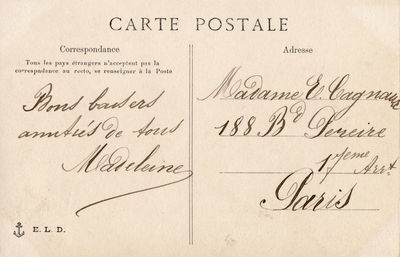 CARTE POSTALE
Correspondance
Tous les pays étrangers n'acceptent pas la
correspondance au recto, se renseigner à la Poste
Bons baisers
amitiés de tous
Madeleine
E. L. D.
Adresse
Madame E. Cagnaux
188 Bd Pereire
17eme Arrt
Paris